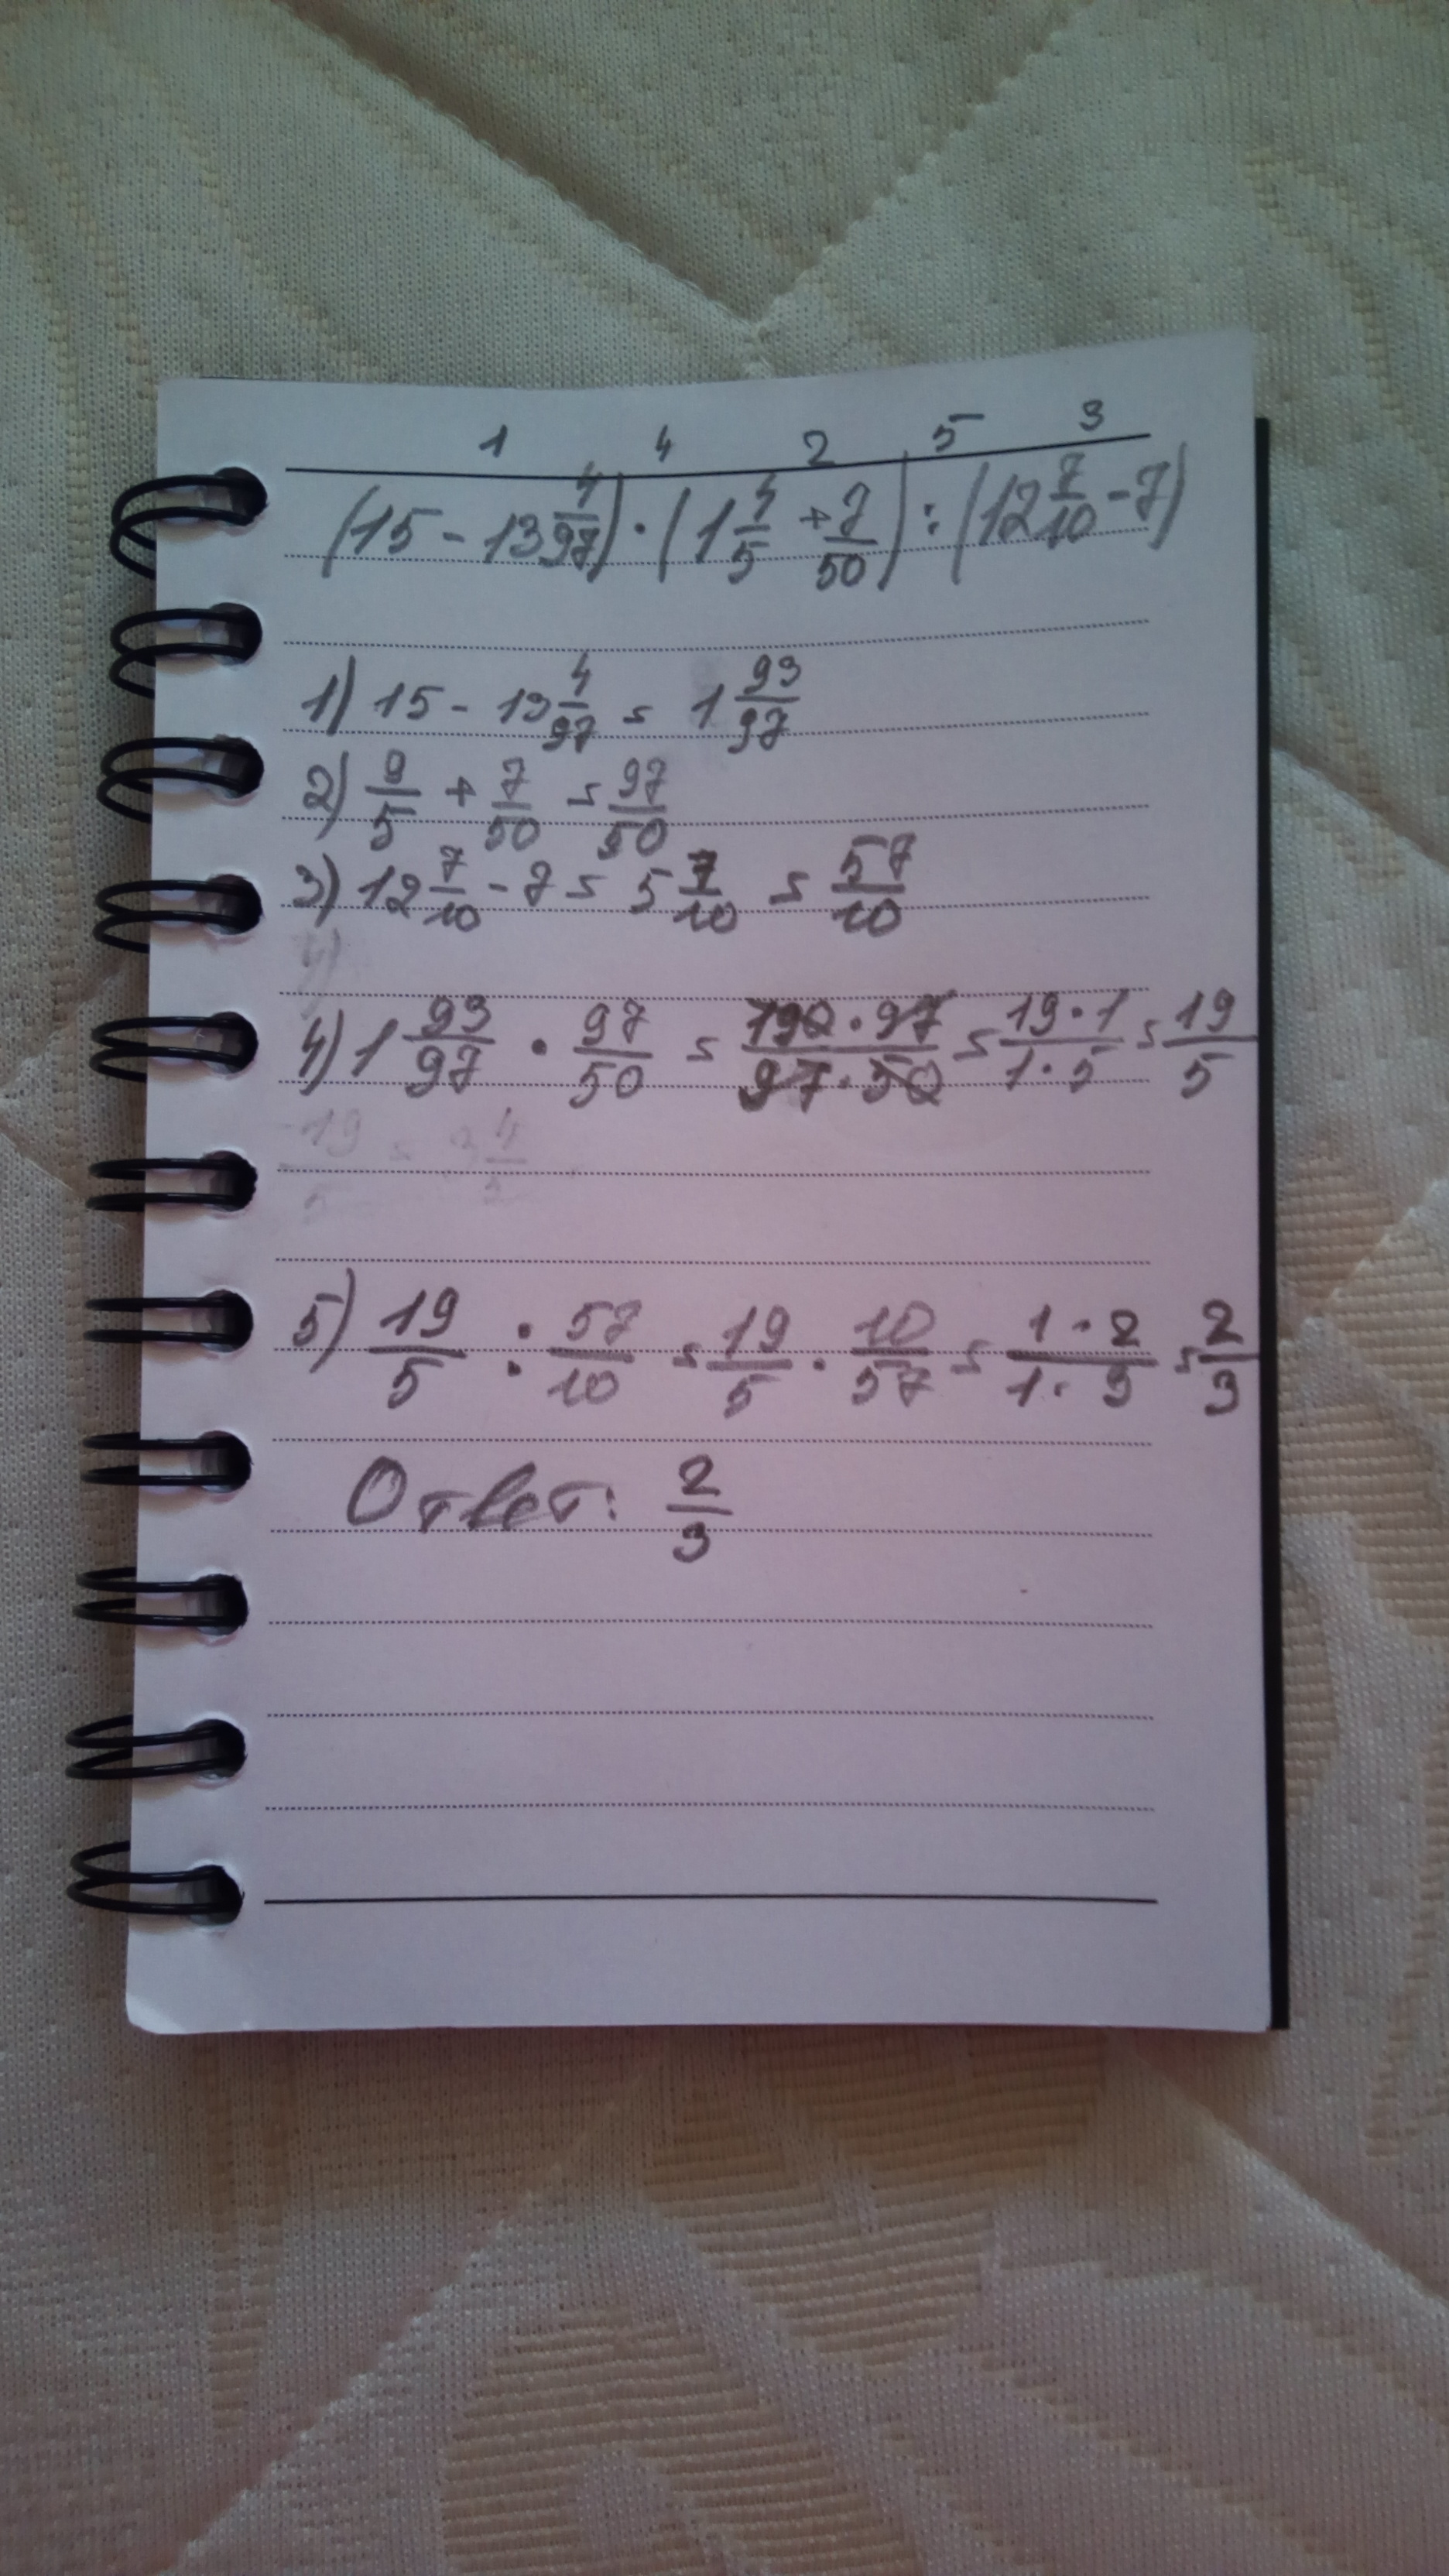 1 4 2 5 3
(15 - 13 4/97) · (1 4/5 + 7/50) : (12 7/10 - 7)
1) 15 - 13 4/97 = 1 93/97
2) 9/5 + 7/50 = 97/50
3) 12 7/10 - 7 = 5 7/10 = 57/10
4) 1 93/97 · 97/50 = 190·97/97·50 = 19·1/1·5 = 19/5
5) 19/5 : 57/10 = 19/5 · 10/57 = 1·2/1·3 = 2/3
Ответ: 2/3